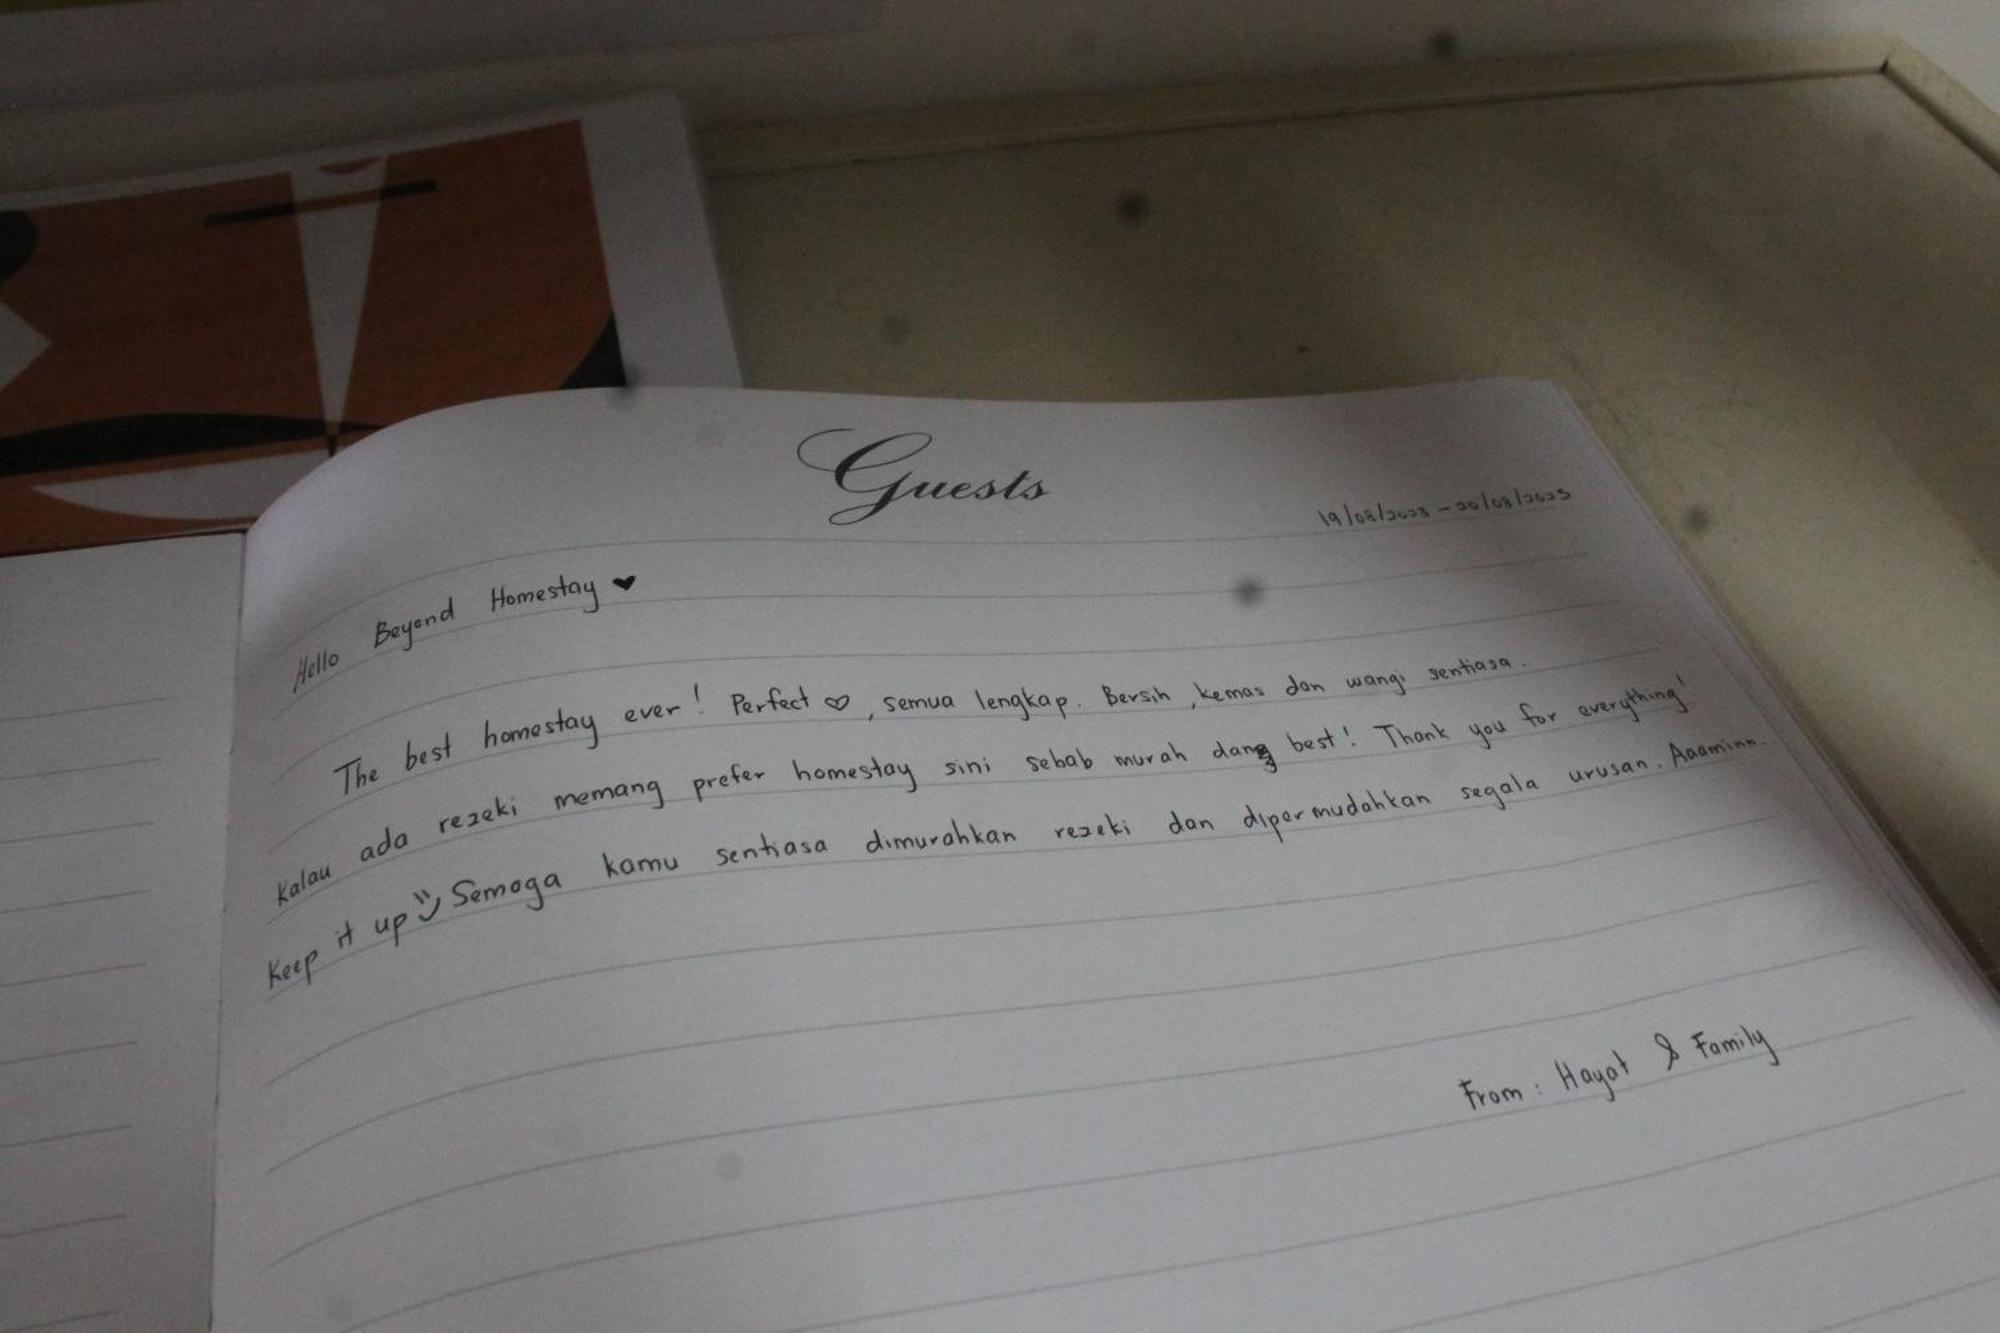 Guests
19/08/2023 - 20/08/2023
Hello Beyond Homestay ♥
The best homestay ever! Perfect ♡, semua lengkap. Bersih, kemas dan wangi sentiasa.
Kalau ada rezeki memang prefer homestay sini sebab murah dan best! Thank you for everything!
Keep it up Semoga kamu sentiasa dimurahkan rezeki dan dipermudahkan segala urusan. Aaaminn.
From: Hayat & Family